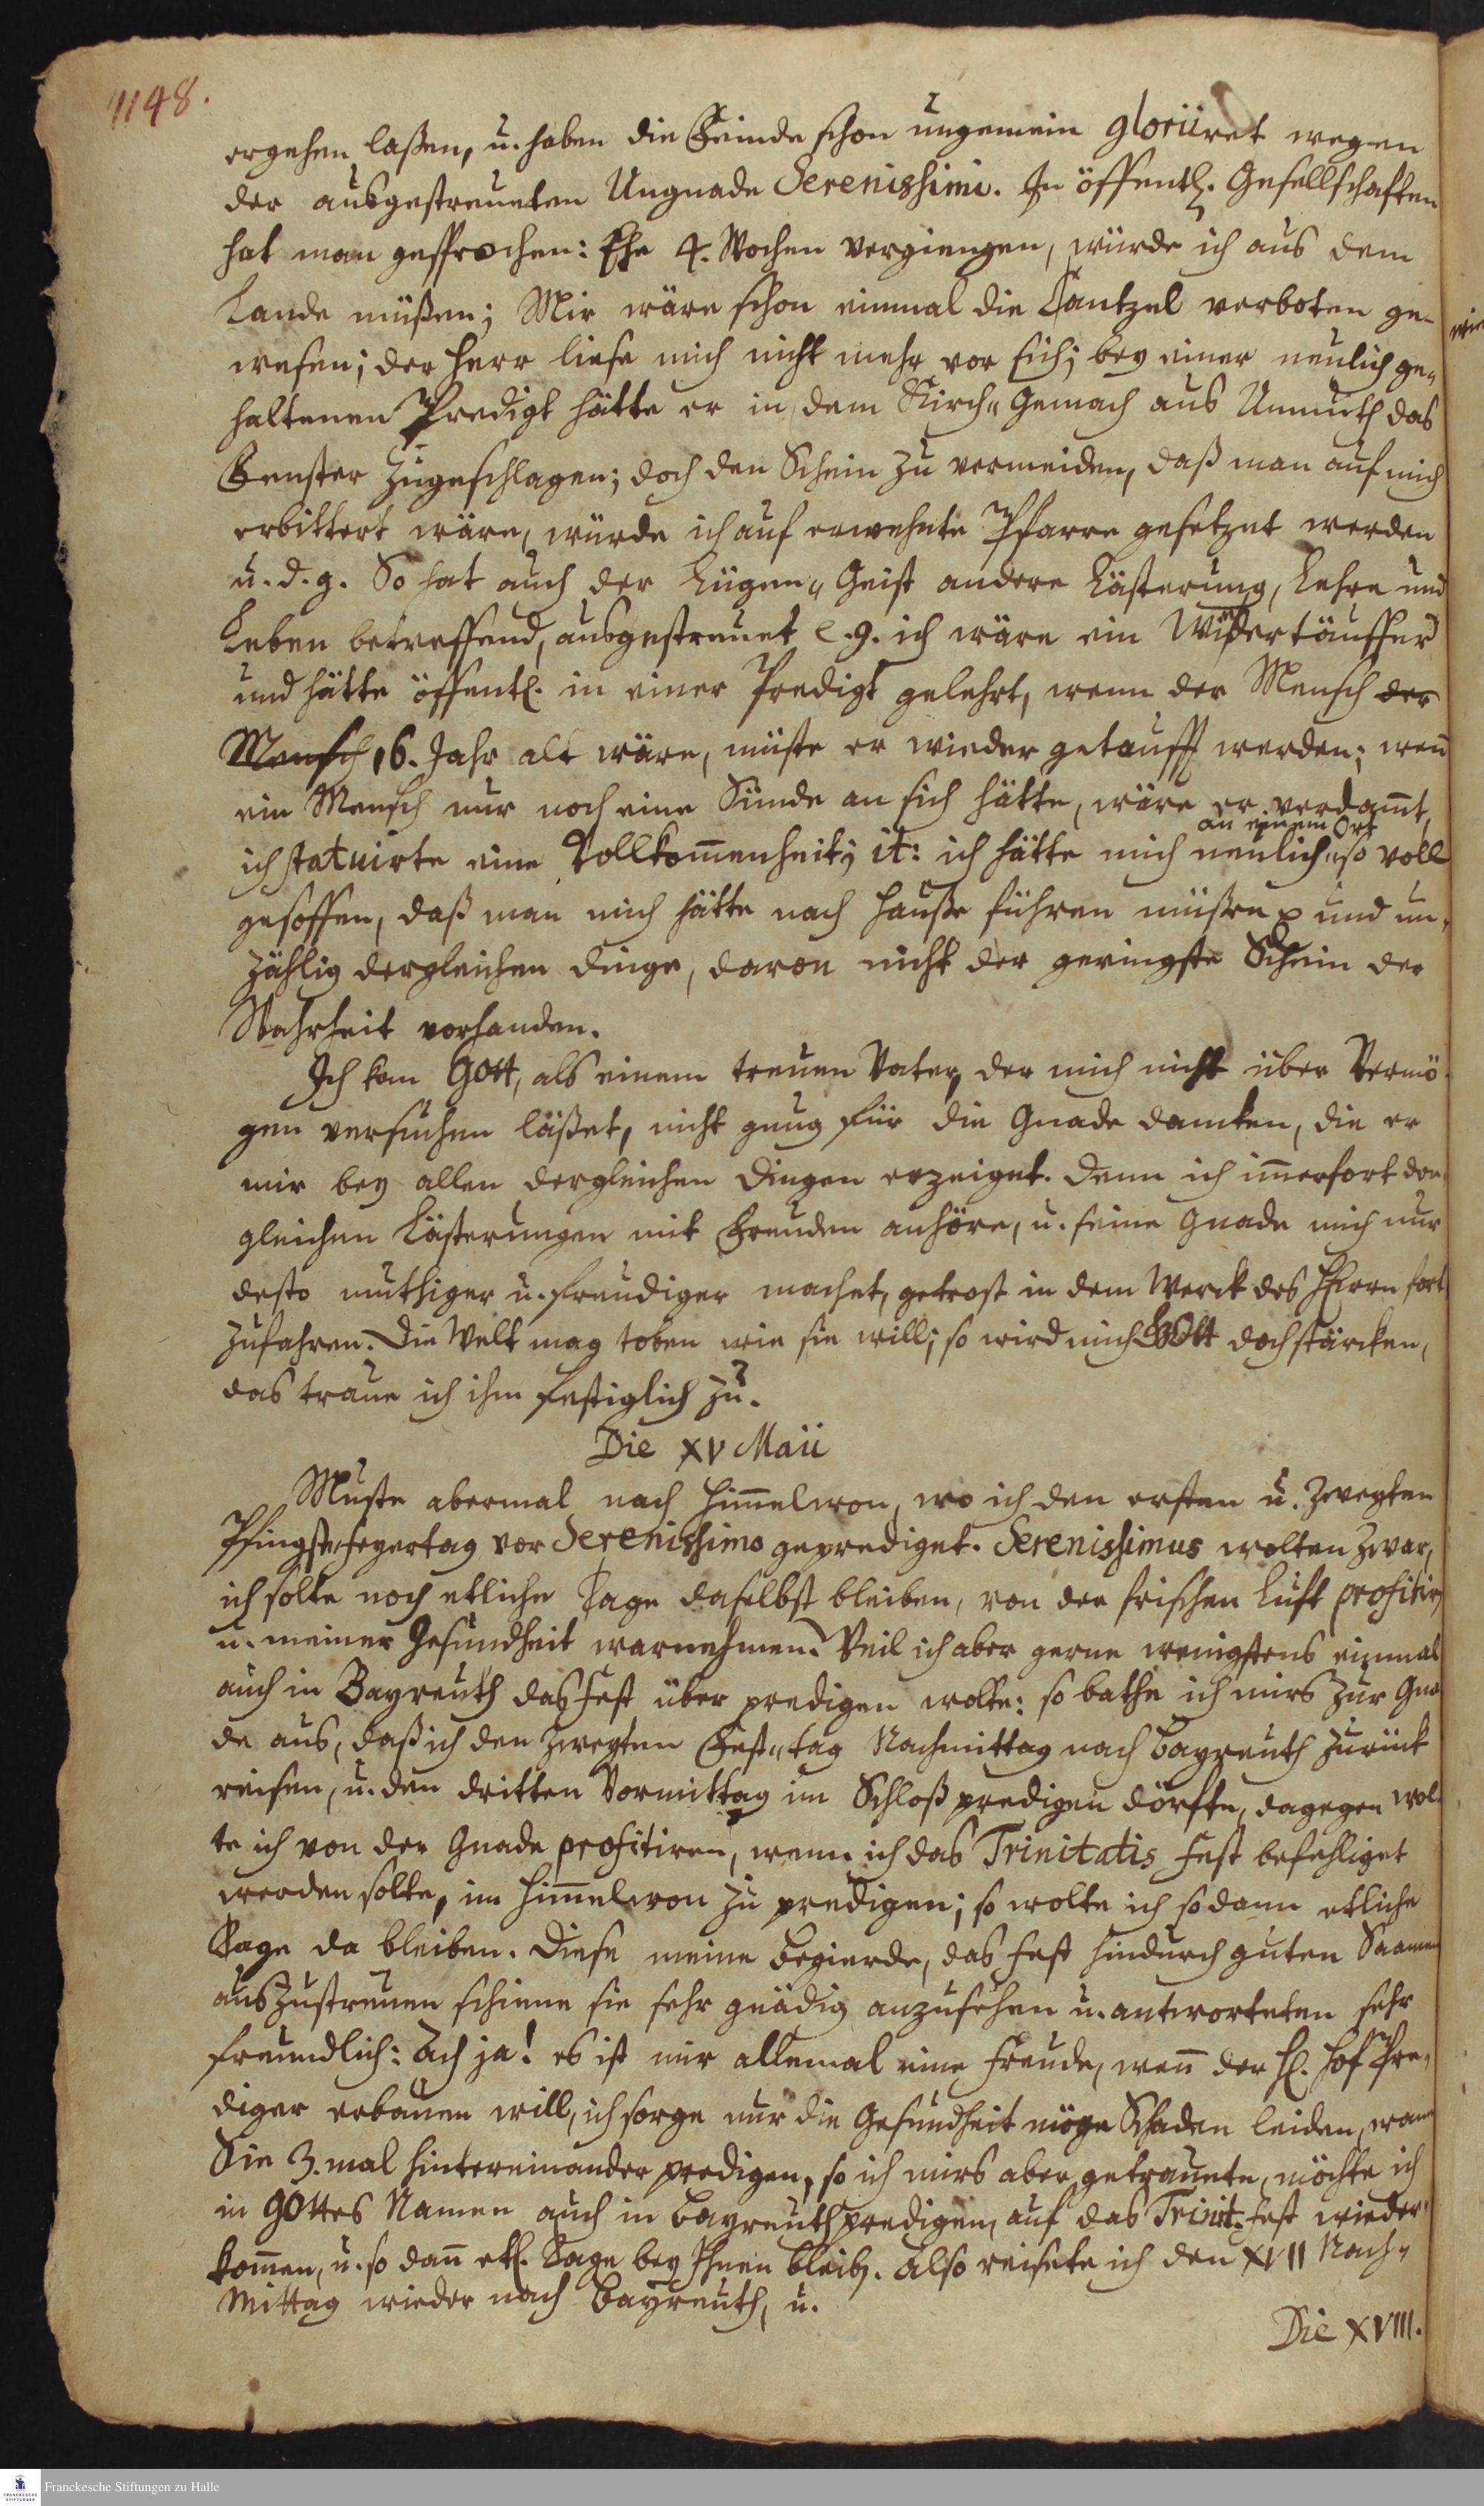 1148.
ergehen laßen, u. haben die Feinde schon ungemein gloriiret wegen
der ausgestreueten Ungnade Serenissimi. In öffentl. Gesellschafften
hat man gesprochen: Ehe 4. Wochen vergiengen, würde ich aus dem
Lande müßen; Mir wäre schon einmal die Cantzel verboten ge-
wesen; der Herr liese mich nicht mehr vor sich; bey einer neulich ge-
haltenen Predigt hätte er in dem Kirch-Gemach aus Unmuth das
Fenster zugeschlagen; doch den Schein zu vermeiden, daß man auf mich
erbittert wäre, würde ich auf erwehnte Pfarre gesetzet werden
u. d. g. So hat auch der Lügen-Geist andere Lästerung, Lehre und
Leben betreffend, ausgestreuet e. g. ich wäre ein Widertäuffer
und hätte öffentl. in einer Predigt gelehrt, wenn der Mensch der
Mensch 16. Jahr alt wäre, müste er wieder getaufft werden; wen̄
ein Mensch nur noch eine Sünde an sich hätte, wäre er verdam̄t,
an einem Ort
ich statuirte eine Vollkom̄enheit; it: ich hätte mich neulich so voll
gesoffen, daß man mich hätte nach Hauße führen müßen und un-
zählig dergleichen dinge, davon nicht der geringste Schein der
Wahrheit vorhanden.
Ich kan Gott, als einem treuen Vater, der mich nicht über Vermö-
gen versuchen läßet, nicht gnug für die Gnade dancken, die er
mir bey allen dergleichen Dingen erzeiget. Denn ich im̄erfort der-
gleichen Lästerungen mit Freuden anhöre, u. seine Gnade mich nur
desto muthiger u. freudiger machet, getrost in dem Werck des HErrn fort
zufahren. Die Welt mag toben wie sie will; so wird mich GOtt doch stärcken,
das traue ich ihm festiglich zu.
Die XV Maii
Muste abermal nach Him̄elcron, wo ich den ersten u. zweyten
Pfingstfeyertag vor Serenissimo geprediget. Serenissimus wolten zwar,
ich solte noch etliche Tage daselbst bleiben, von der frischen Luft profitir
u. meiner Gesundheit warnehmen. Weil ich aber gerne wenigstens einmal
auch in Bayreuth das Fest über predigen wolte: so bathe ich mirs zur Gna
de aus, daß ich den zweyten Fest-tag Nachmittag nach Bayreuth zurück
reisen, u. den dritten Vormittag im Schloß predigen dörfte, dagegen wol
te ich von der Gnade profitiren, wenn ich das Trinitatis Fest befehliget
werden solte, im Him̄elcron zu predigen; so wolte ich sodann etliche
Tage da bleiben. Diese meine Begierde, das Fest hindurch guten Saamen
auszustreuen schiene sie sehr gnädig anzusehen u. antworteten sehr
freundlich: Ach ja! es ist mir allemal eine Freude, wen̄ der H. Hof Pre-
diger erbauen will, ich sorge nur die Gesundheit möge Schaden leiden, wann
Sie 3. mal hintereinander predigen, so ich mirs aber getrauete, möchte ich
in GOttes Namen auch in Bayreuth predigen, auf das Trinit. Fest wieder-
kom̄en, u. so dan̄ etl. Tage bey Ihnen bleib. Also reisete ich den XVII Nach-
Mittag wieder nach Bayreuth, u.
Die XVIII.
Franckesche Stiftungen zu Halle